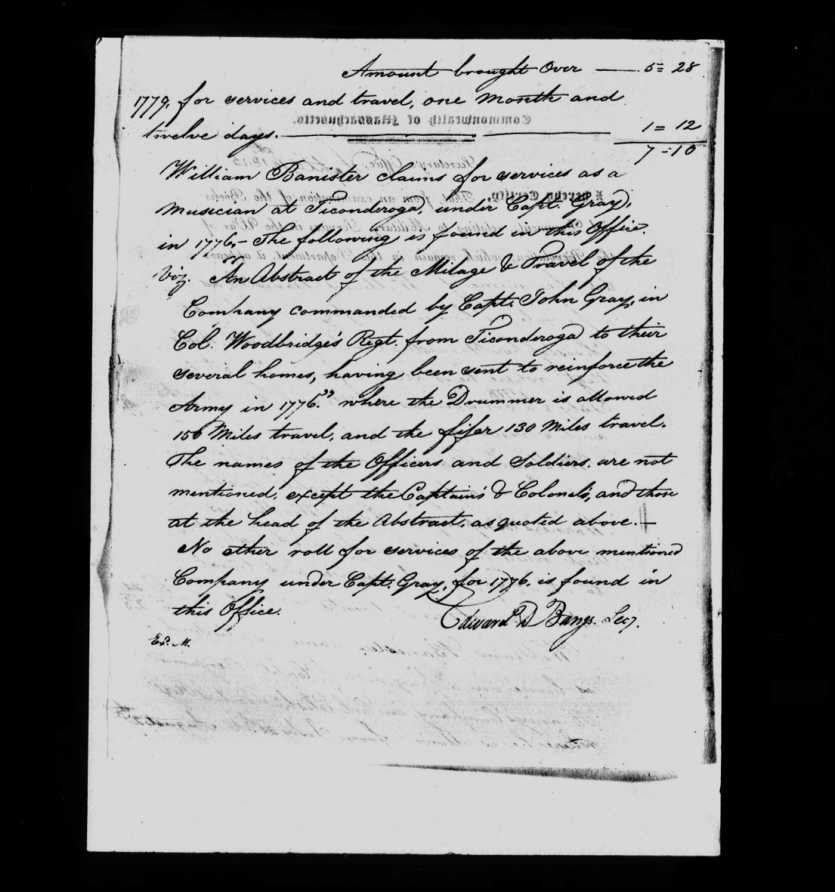 Amount brought Over — 5 = 28
1779. for services and travel, one Month and
twelve days. — 1 = 12
7 = 10
William Banister claims for services as a
Musician at Ticonderoga, under Capt. Gray,
in 1776,— The following is found in this Office.
Viz. An Abstract of the Milage & Travel of the
Company commanded by Capt. John Gray, in
Col. Woodbridge's Regt. from Ticonderoga to their
several homes, having been sent to reinforce the
Army in 1776." where the Drummer is allowed
156 Miles travel, and the fifer 130 Miles travel.
The names of the Officers and Soldiers, are not
mentioned, except the Captain's & Colonel's, and those
at the head of the Abstract, as quoted above.—
No other roll for services of the above mentioned
Company under Capt. Gray, for 1776, is found in
this Office.
Edward D Bangs. Secy.